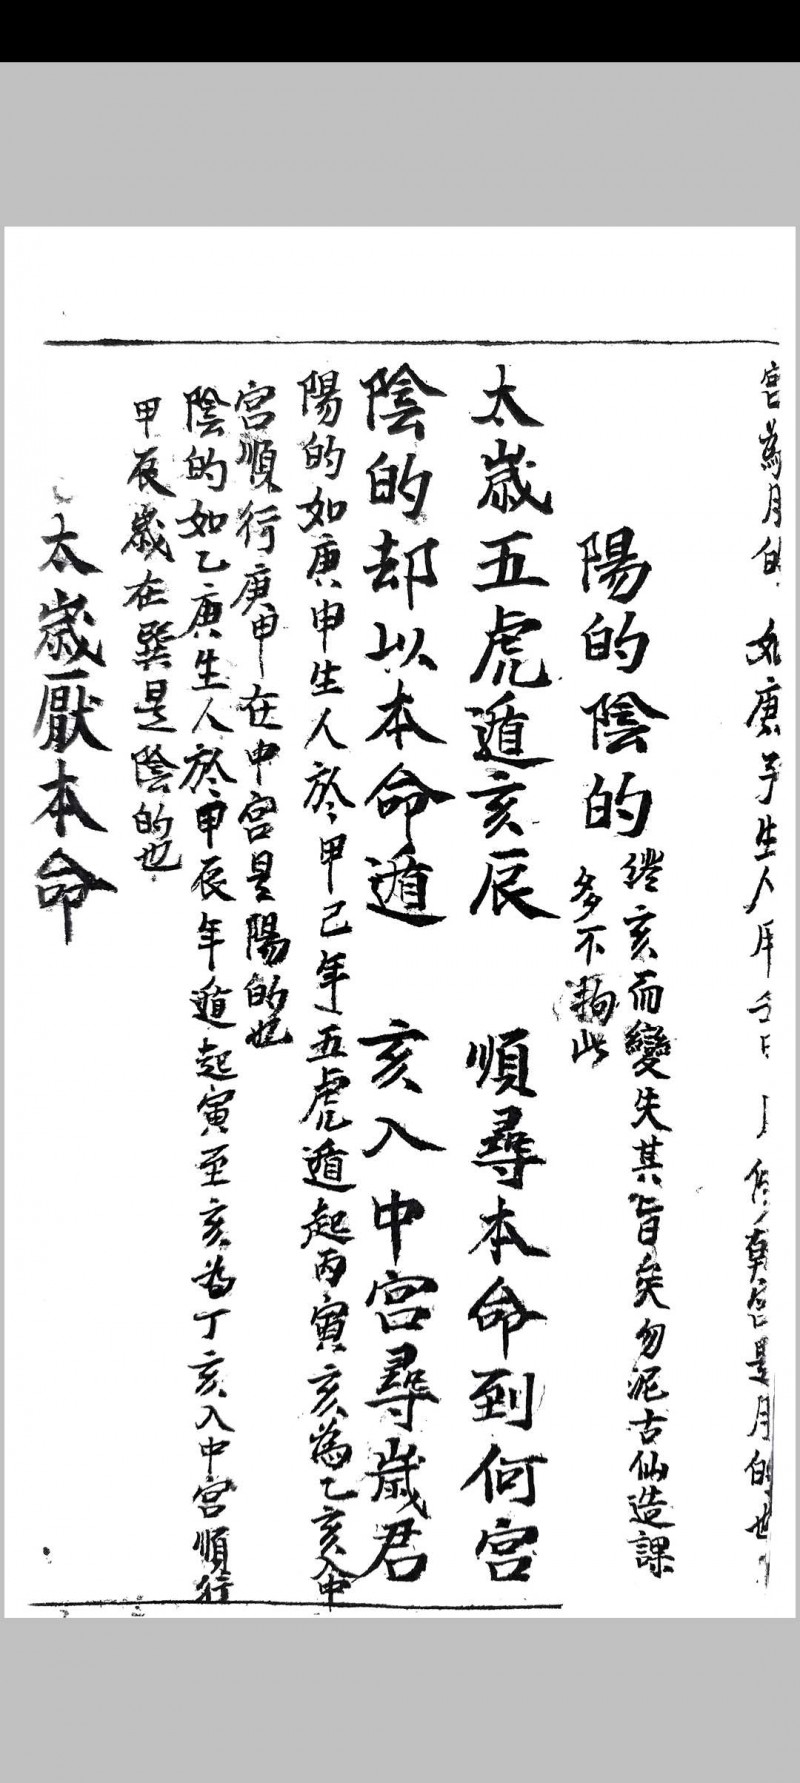 宮為月的 如庚子生人 修 宮是月的也
陽的陰的
逆亥而變失其旨矣勿泥古仙造課
多不拘此
太歲五虎遁亥辰 順尋本命到何宮
陰的却以本命遁 亥入中宮尋歲君
陽的如庚申生人於甲己年五虎遁起丙寅亥為乙亥入中
宮順行庚申在中宮是陽的也
陰的如乙庚生人於甲辰年遁起寅至亥為丁亥入中宮順行
甲辰歲在巽是陰的也
太歲厭本命